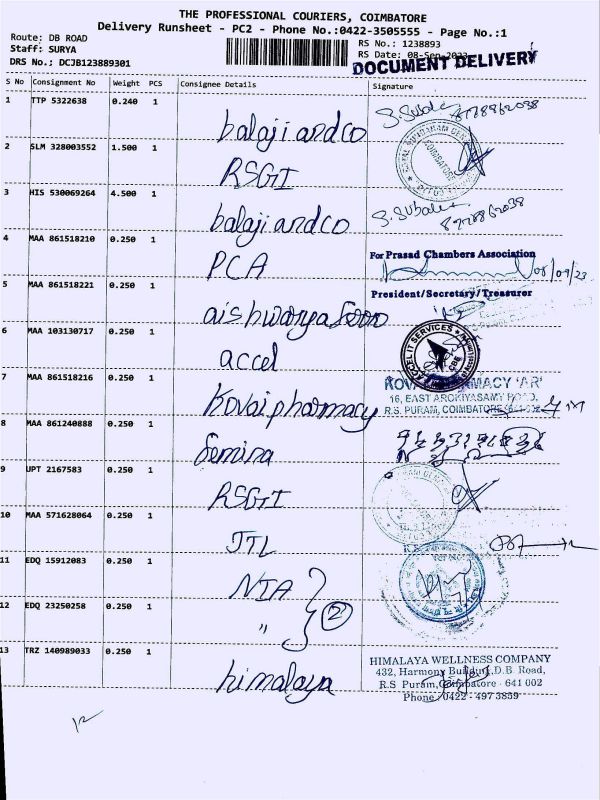 THE PROFESSIONAL COURIERS, COIMBATORE
Delivery Runsheet - PC2 - Phone No.:0422-3505555 - Page No.:1
Route: DB ROAD
Staff: SURYA
DRS No.: DCJB123889301
RS No.: 1238893
RS Date: 08-Sep-2023
DOCUMENT DELIVERY
S No Consignment No Weight PCS Consignee Details Signature
1 TTP 5322638 0.240 1 balaji and co
8778862038
2 SLM 328003552 1.500 1 RSGI
3 HIS 530069264 4.500 1 balaji and co
8778862038
4 MAA 861518210 0.250 1 PCA
For Prasad Chambers Association
08/09/23
President/Secretary/Treasurer
5 MAA 861518221 0.250 1 aishwarya
6 MAA 103130717 0.250 1 accel
ACCEL IT SERVICES
CBE
7 MAA 861518216 0.250 1 Kovai pharmacy
KOVAI PHARMACY 'AR'
16, EAST AROKIYASAMY ROAD,
R.S. PURAM, COIMBATORE
8 MAA 861240888 0.250 1 Femina
9 UPT 2167583 0.250 1 RSGI
10 MAA 571628064 0.250 1 JTL
11 EDQ 15912083 0.250 1 NIA
2
12 EDQ 23250258 0.250 1 "
13 TRZ 140989033 0.250 1 himalaya
HIMALAYA WELLNESS COMPANY
432, Harmony Building, D.B. Road,
R.S Puram, Coimbatore - 641 002
Phone : 0422 - 497 3859